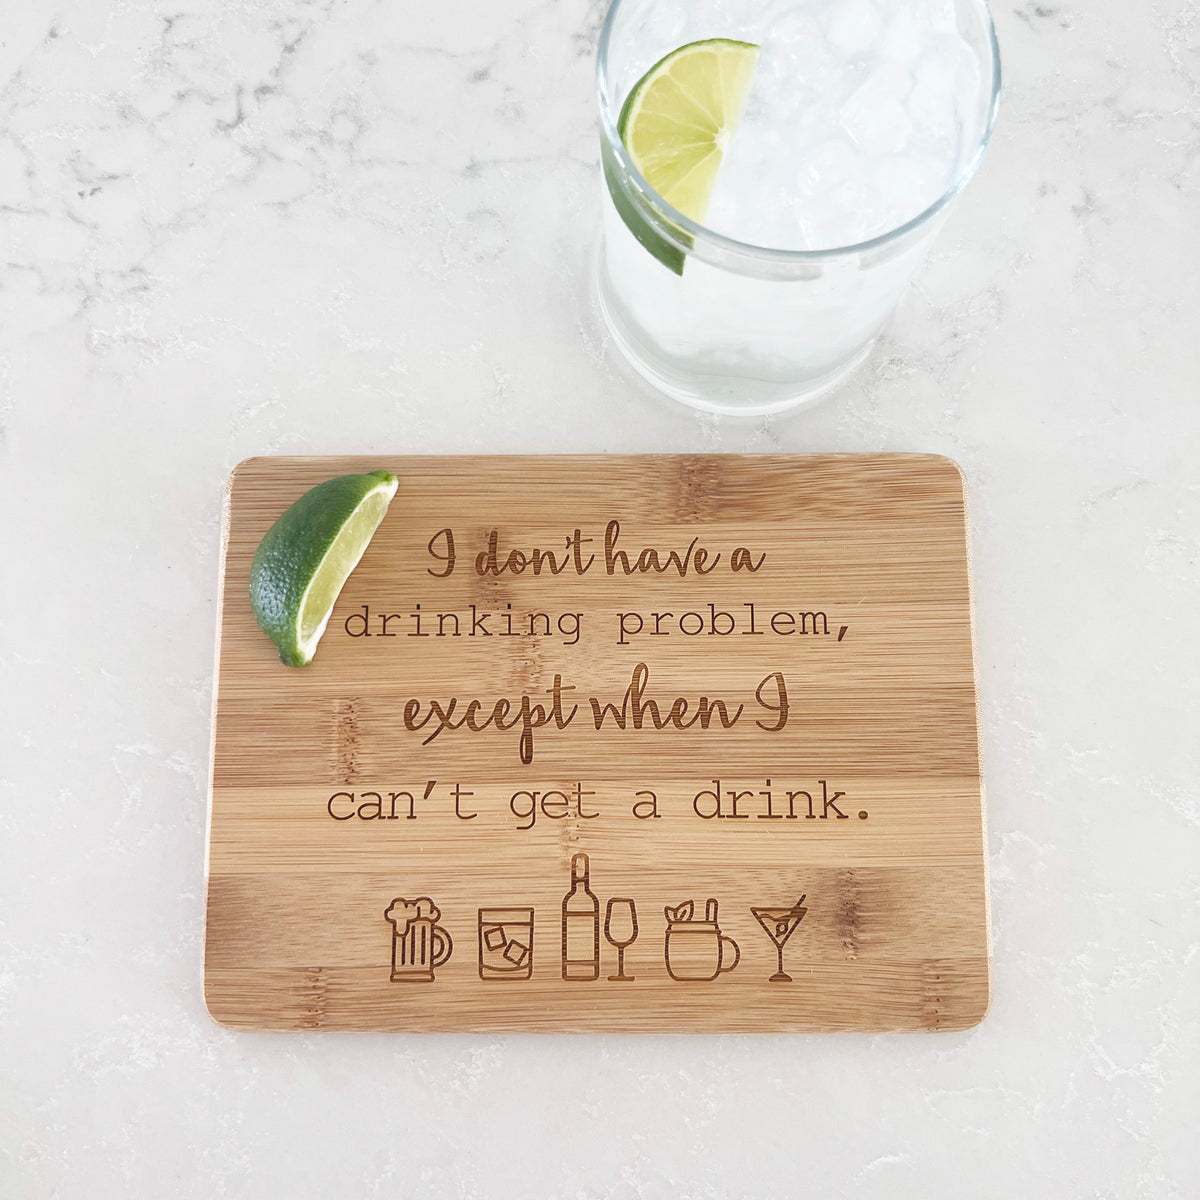 I don't have a
drinking problem,
except when I
can't get a drink.